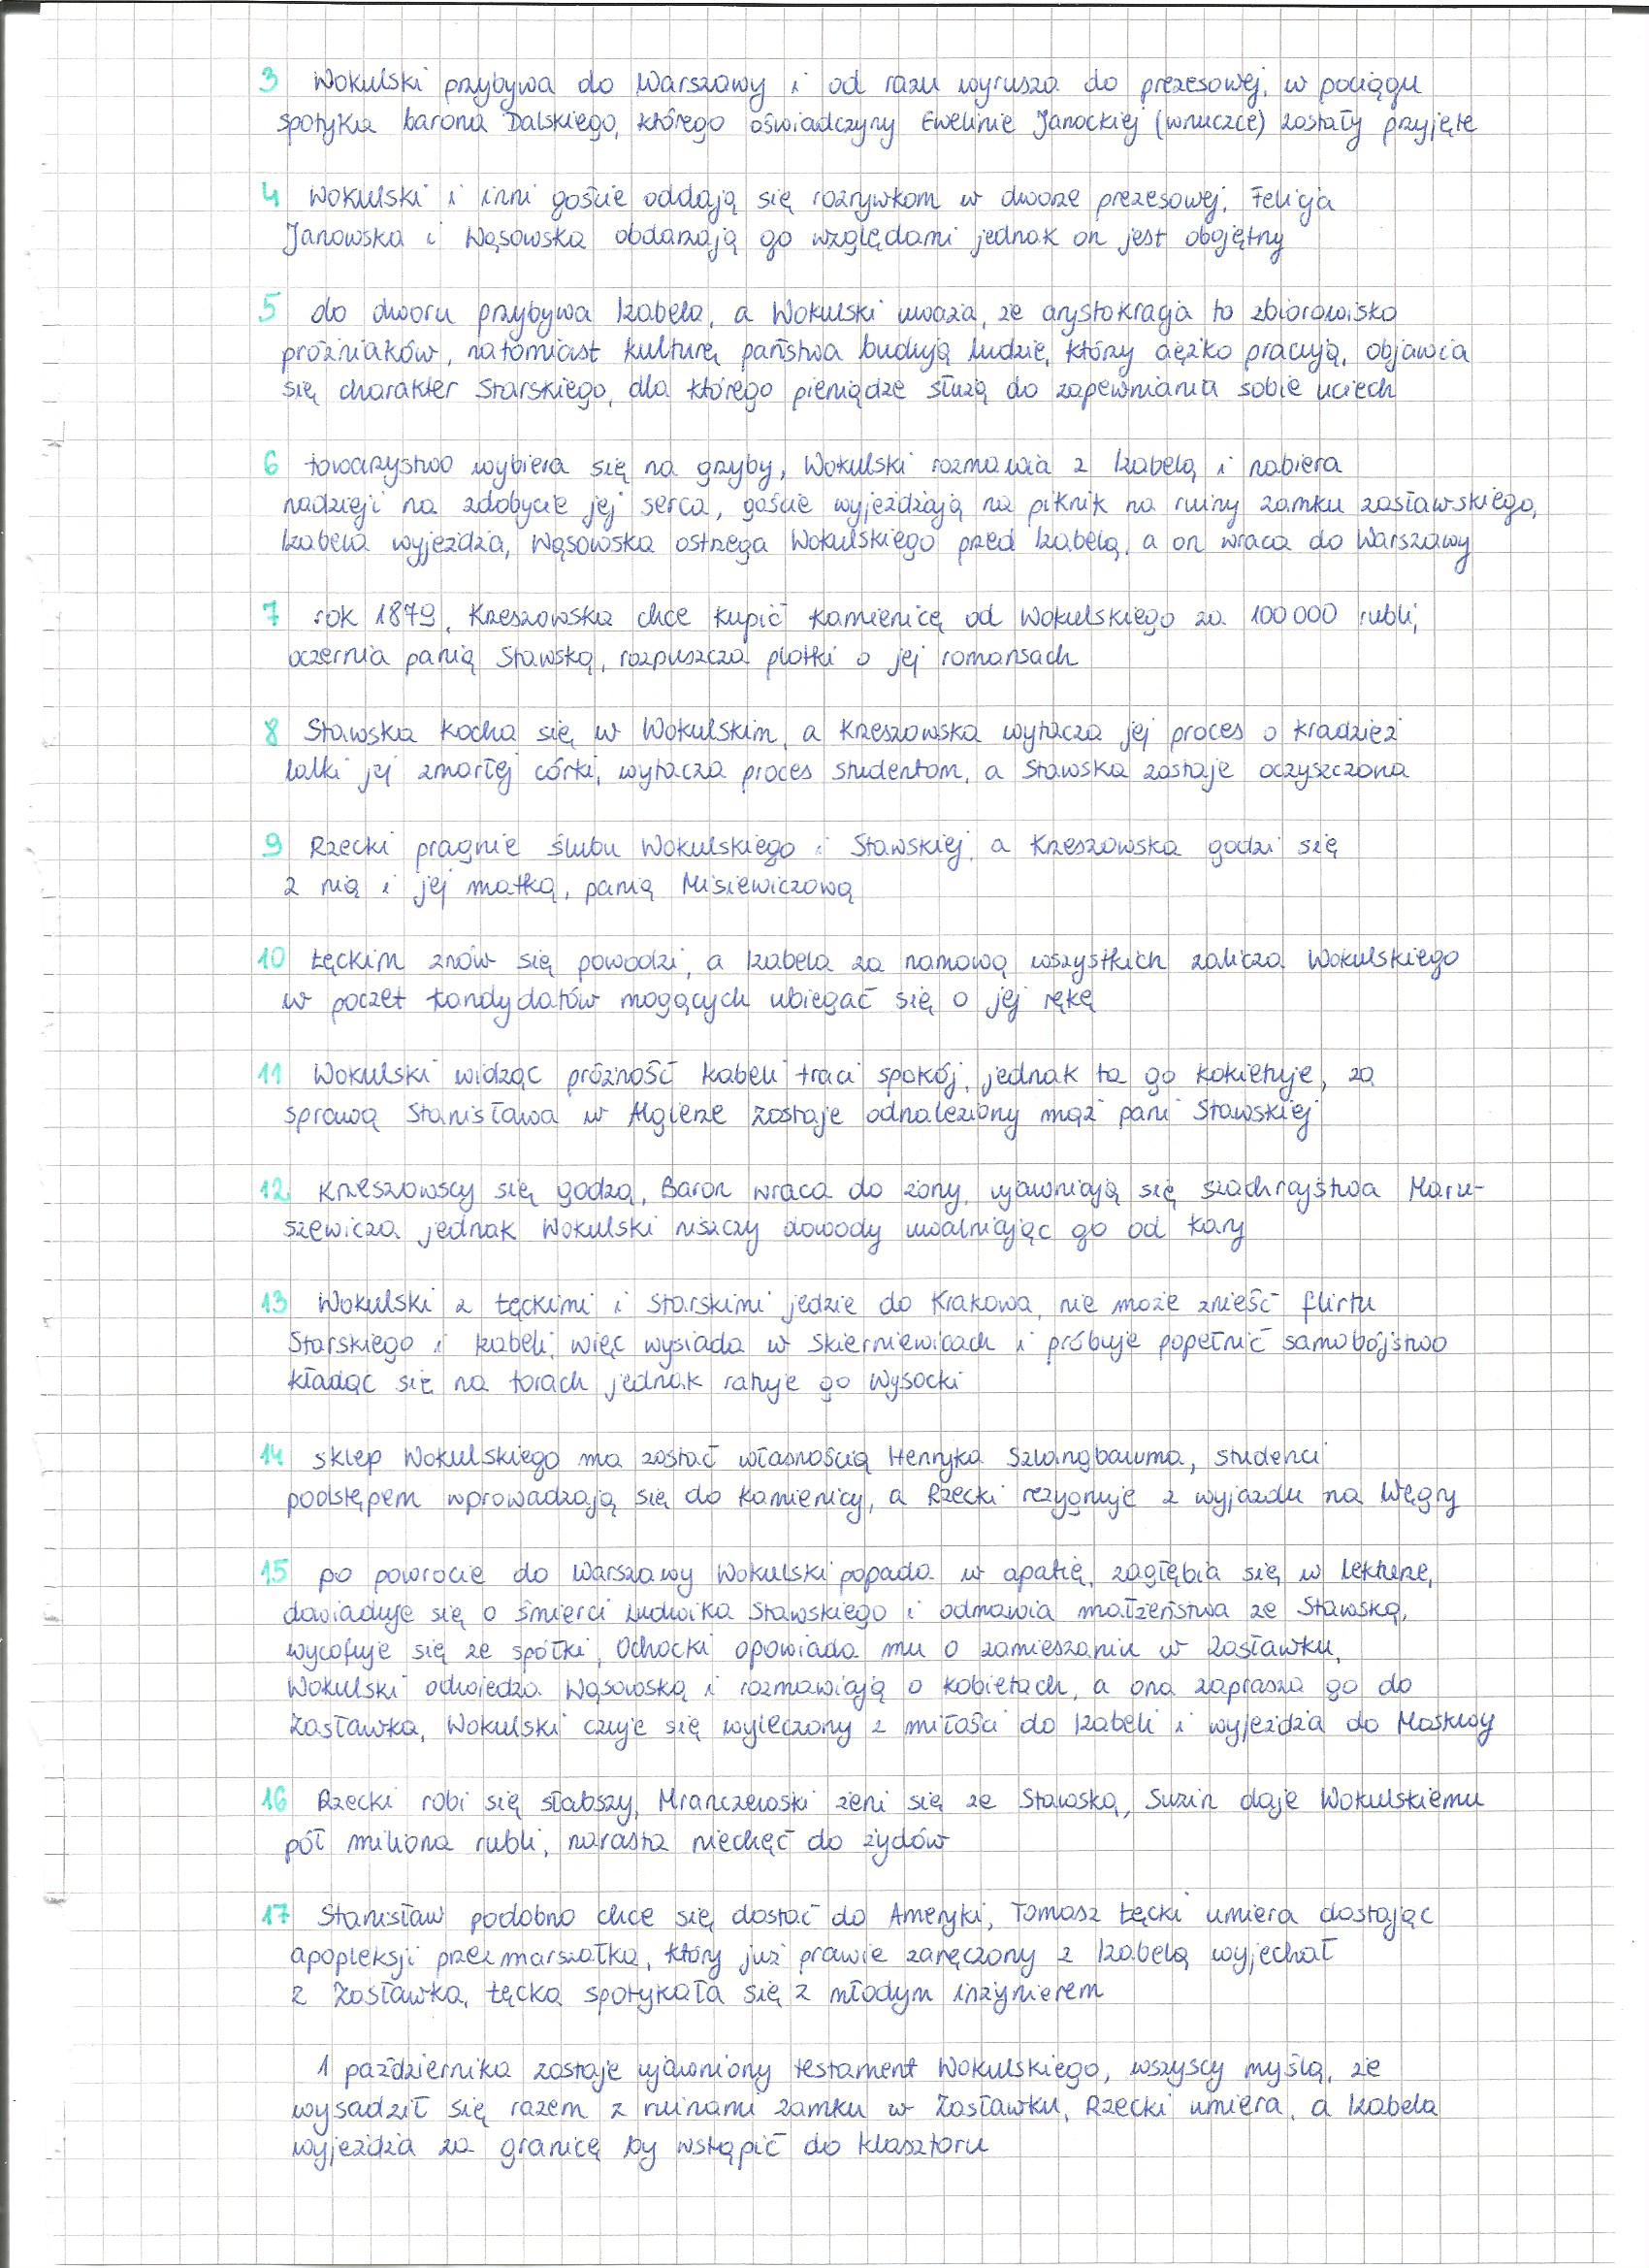 3 Wokulski przybywa do Warszawy i od razu wyrusza do prezesowej, w pociągu
spotyka barona Dalskiego, którego oświadczyny Ewelinie Janockiej (wnuczce) zostały przyjęte
4 Wokulski i inni goście oddają się rozrywkom w dworze prezesowej, Felicja
Janowska i Wąsowska obdarzają go względami jednak on jest obojętny
5 do dworu przybywa Izabela, a Wokulski uważa, że arystokracja to zbiorowisko
próżniaków, natomiast kulturę państwa budują ludzie, którzy ciężko pracują, objawia
się charakter Starskiego, dla którego pieniądze służą do zapewniania sobie uciech
6 towarzystwo wybiera się na grzyby, Wokulski rozmawia z Izabelą i nabiera
nadzieji na zdobycie jej serca, goście wyjeżdżają na piknik na ruiny zamku zasławskiego,
Izabela wyjeżdża, Wąsowska ostrzega Wokulskiego przed Izabelą, a on wraca do Warszawy
7 rok 1879, Krzeszowska chce kupić kamienicę od Wokulskiego za 100 000 rubli,
oczernia panią Stawską, rozpuszcza plotki o jej romansach
8 Stawska kocha się w Wokulskim, a Krzeszowska wytacza jej proces o kradzież
lalki jej zmarłej córki, wytacza proces studentom, a Stawska zostaje oczyszczona
9 Rzecki pragnie ślubu Wokulskiego i Stawskiej, a Krzeszowska godzi się
z nią i jej matką, panią Misiewiczową
10 Łęckim znów się powodzi, a Izabela za namową wszystkich zalicza Wokulskiego
w poczet kandydatów mogących ubiegać się o jej rękę
11 Wokulski widząc próżność Izabeli traci spokój, jednak ta go kokietuje, za
sprawą Stanisława w Algierze zostaje odnaleziony mąż pani Stawskiej
12 Krzeszowscy się godzą, Baron wraca do żony, ujawniają się szachrajstwa Maru-
szewicza jednak Wokulski niszczy dowody uwalniając go od kary
13 Wokulski z Łęckimi i Starskimi jedzie do Krakowa, nie może znieść flirtu
Starskiego i Izabeli, więc wysiada w Skierniewicach i próbuje popełnić samobójstwo
kładąc się na torach jednak ratuje go Wysocki
14 sklep Wokulskiego ma zostać własnością Henryka Szlangbauma, studenci
podstępem wprowadzają się do kamienicy, a Rzecki rezygnuje z wyjazdu na Węgry
15 po powrocie do Warszawy Wokulski popada w apatię, zagłębia się w lekturze,
dowiaduje się o śmierci Ludwika Stawskiego i odmawia małżeństwa ze Stawską,
wycofuje się ze spółki, Ochocki opowiada mu o zamieszaniu w Zasławku,
Wokulski odwiedza Wąsowską i rozmawiają o kobietach, a ona zaprasza go do
Zasławka, Wokulski czuje się wyleczony z miłości do Izabeli i wyjeżdża do Moskwy
16 Rzecki robi się słabszy, Mraczewski żeni się ze Stawską, Suzin daje Wokulskiemu
pół miliona rubli, narasta niechęć do żydów
17 Stanisław podobno chce się dostać do Ameryki, Tomasz Łęcki umiera dostając
apopleksji przez marszałka, który już prawie zaręczony z Izabelą wyjechał
z Zasławka, Łęcka spotykała się z młodym inżynierem
1 października zostaje ujawniony testament Wokulskiego, wszyscy myślą, że
wysadził się razem z ruinami zamku w Zasławku, Rzecki umiera, a Izabela
wyjeżdża za granicę by wstąpić do klasztoru